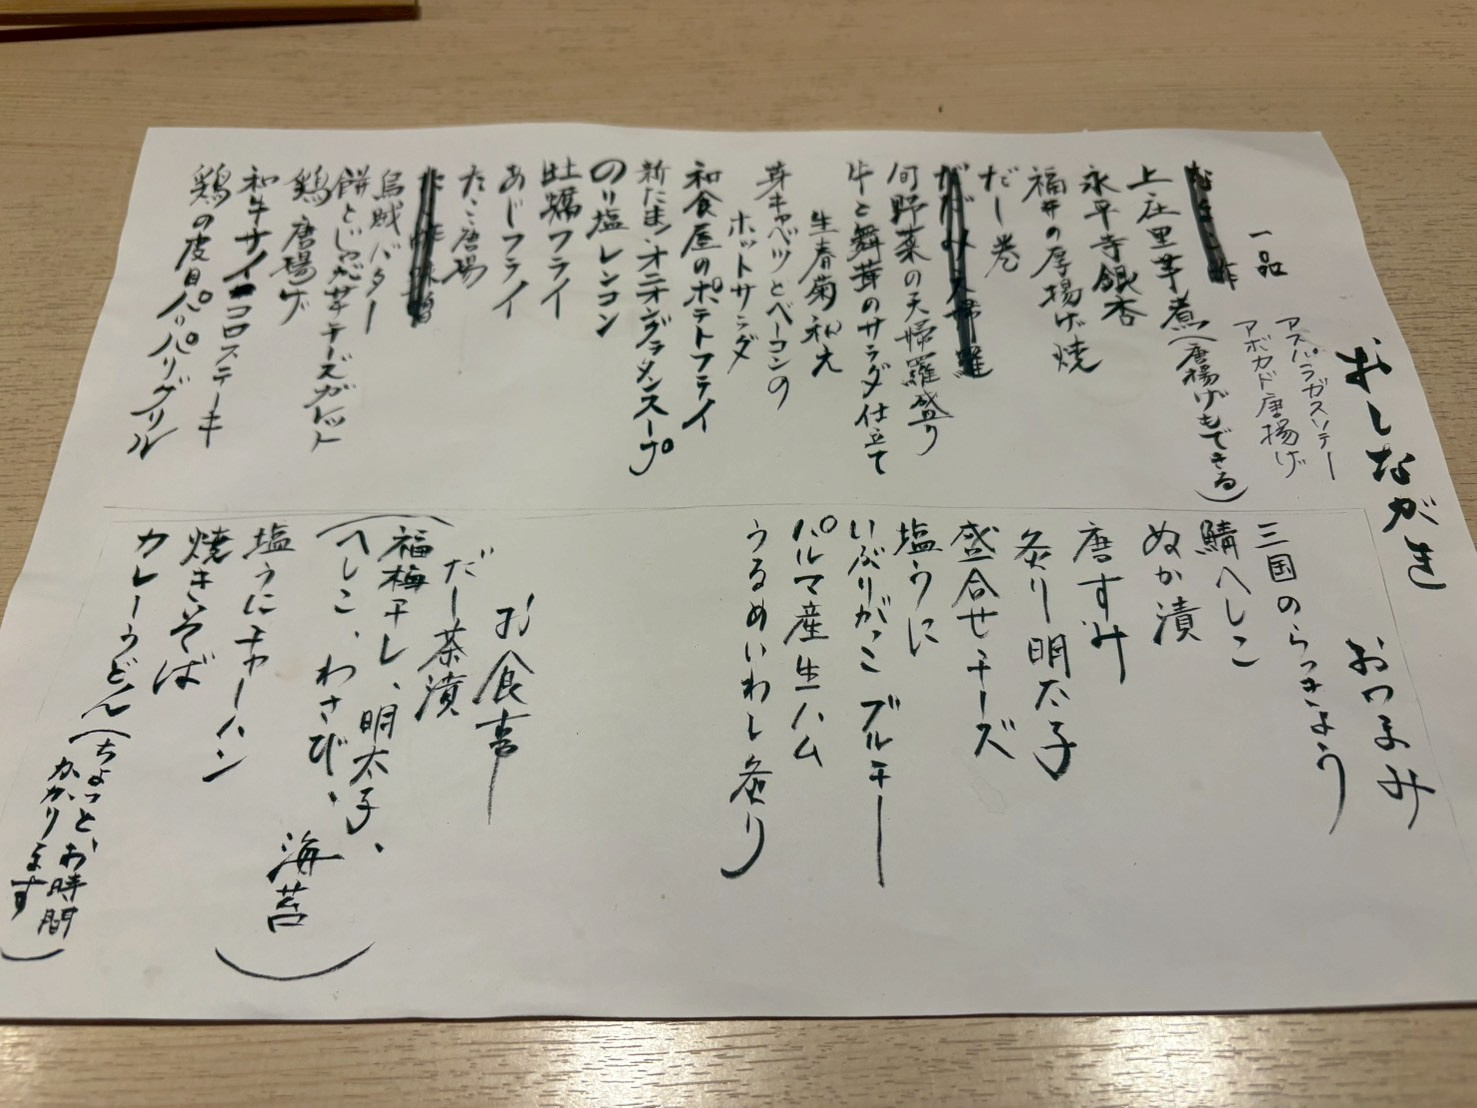 おしながき
一品
アスパラガスソテー
アボカド唐揚げ
上庄里芋煮(唐揚げもできる)
永平寺銀杏
福井の厚揚げ焼
だし巻
旬野菜の天婦羅盛り
牛と舞茸のサラダ仕立て
生春菊和え
芽キャベツとベーコンの
ホットサラダ
和食屋のポテトフライ
新たまオニオングラタンスープ
のり塩レンコン
牡蠣フライ
あじフライ
たこ唐揚
烏賊バター
餅とじゃが芋チーズガレット
鶏唐揚げ
和牛サイコロステーキ
鶏の皮目パリパリグリル
おつまみ
三国のらっきょう
鯖へしこ
ぬか漬
唐すみ
炙り明太子
盛合せチーズ
塩うに
いぶりがっこブルチー
パルマ産生ハム
うるめいわし炙り
お食事
だし茶漬
(福梅干し、明太子、
へしこ、わさび、
海苔)
塩うにチャーハン
焼きそば
カレーうどん(ちょっと、お時間
かかります)